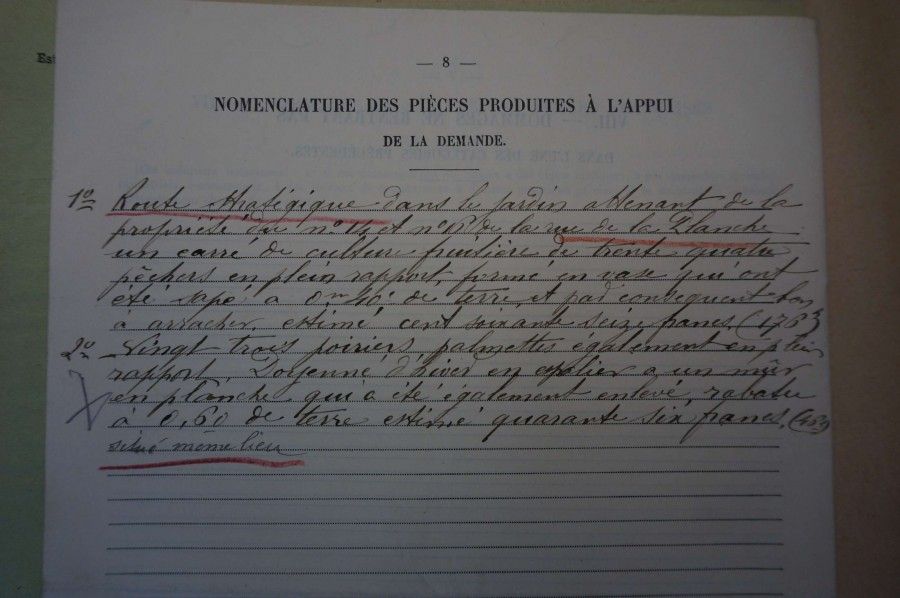 Est
— 8 —
NOMENCLATURE DES PIÈCES PRODUITES À L'APPUI
DE LA DEMANDE.
1º Route stratégique dans le jardin attenant de la
propriété du nº 14 et nº 16 de la rue de la Planche
un carré de culture fruitière de trente quatre
pêchers en plein rapport, forme en vase qui ont
été sapé a 0m,10c de terre et par conséquent bon
à arracher. estimé cent soixante seize francs (176f)
2º Vingt trois poiriers, palmettes également en plein
rapport. Doyenné d'hiver en espalier a un mûr
en planche qui a été également enlevé, rabatu
à 0,60 de terre estimé quarante six francs. (46f)
situé meme lieu